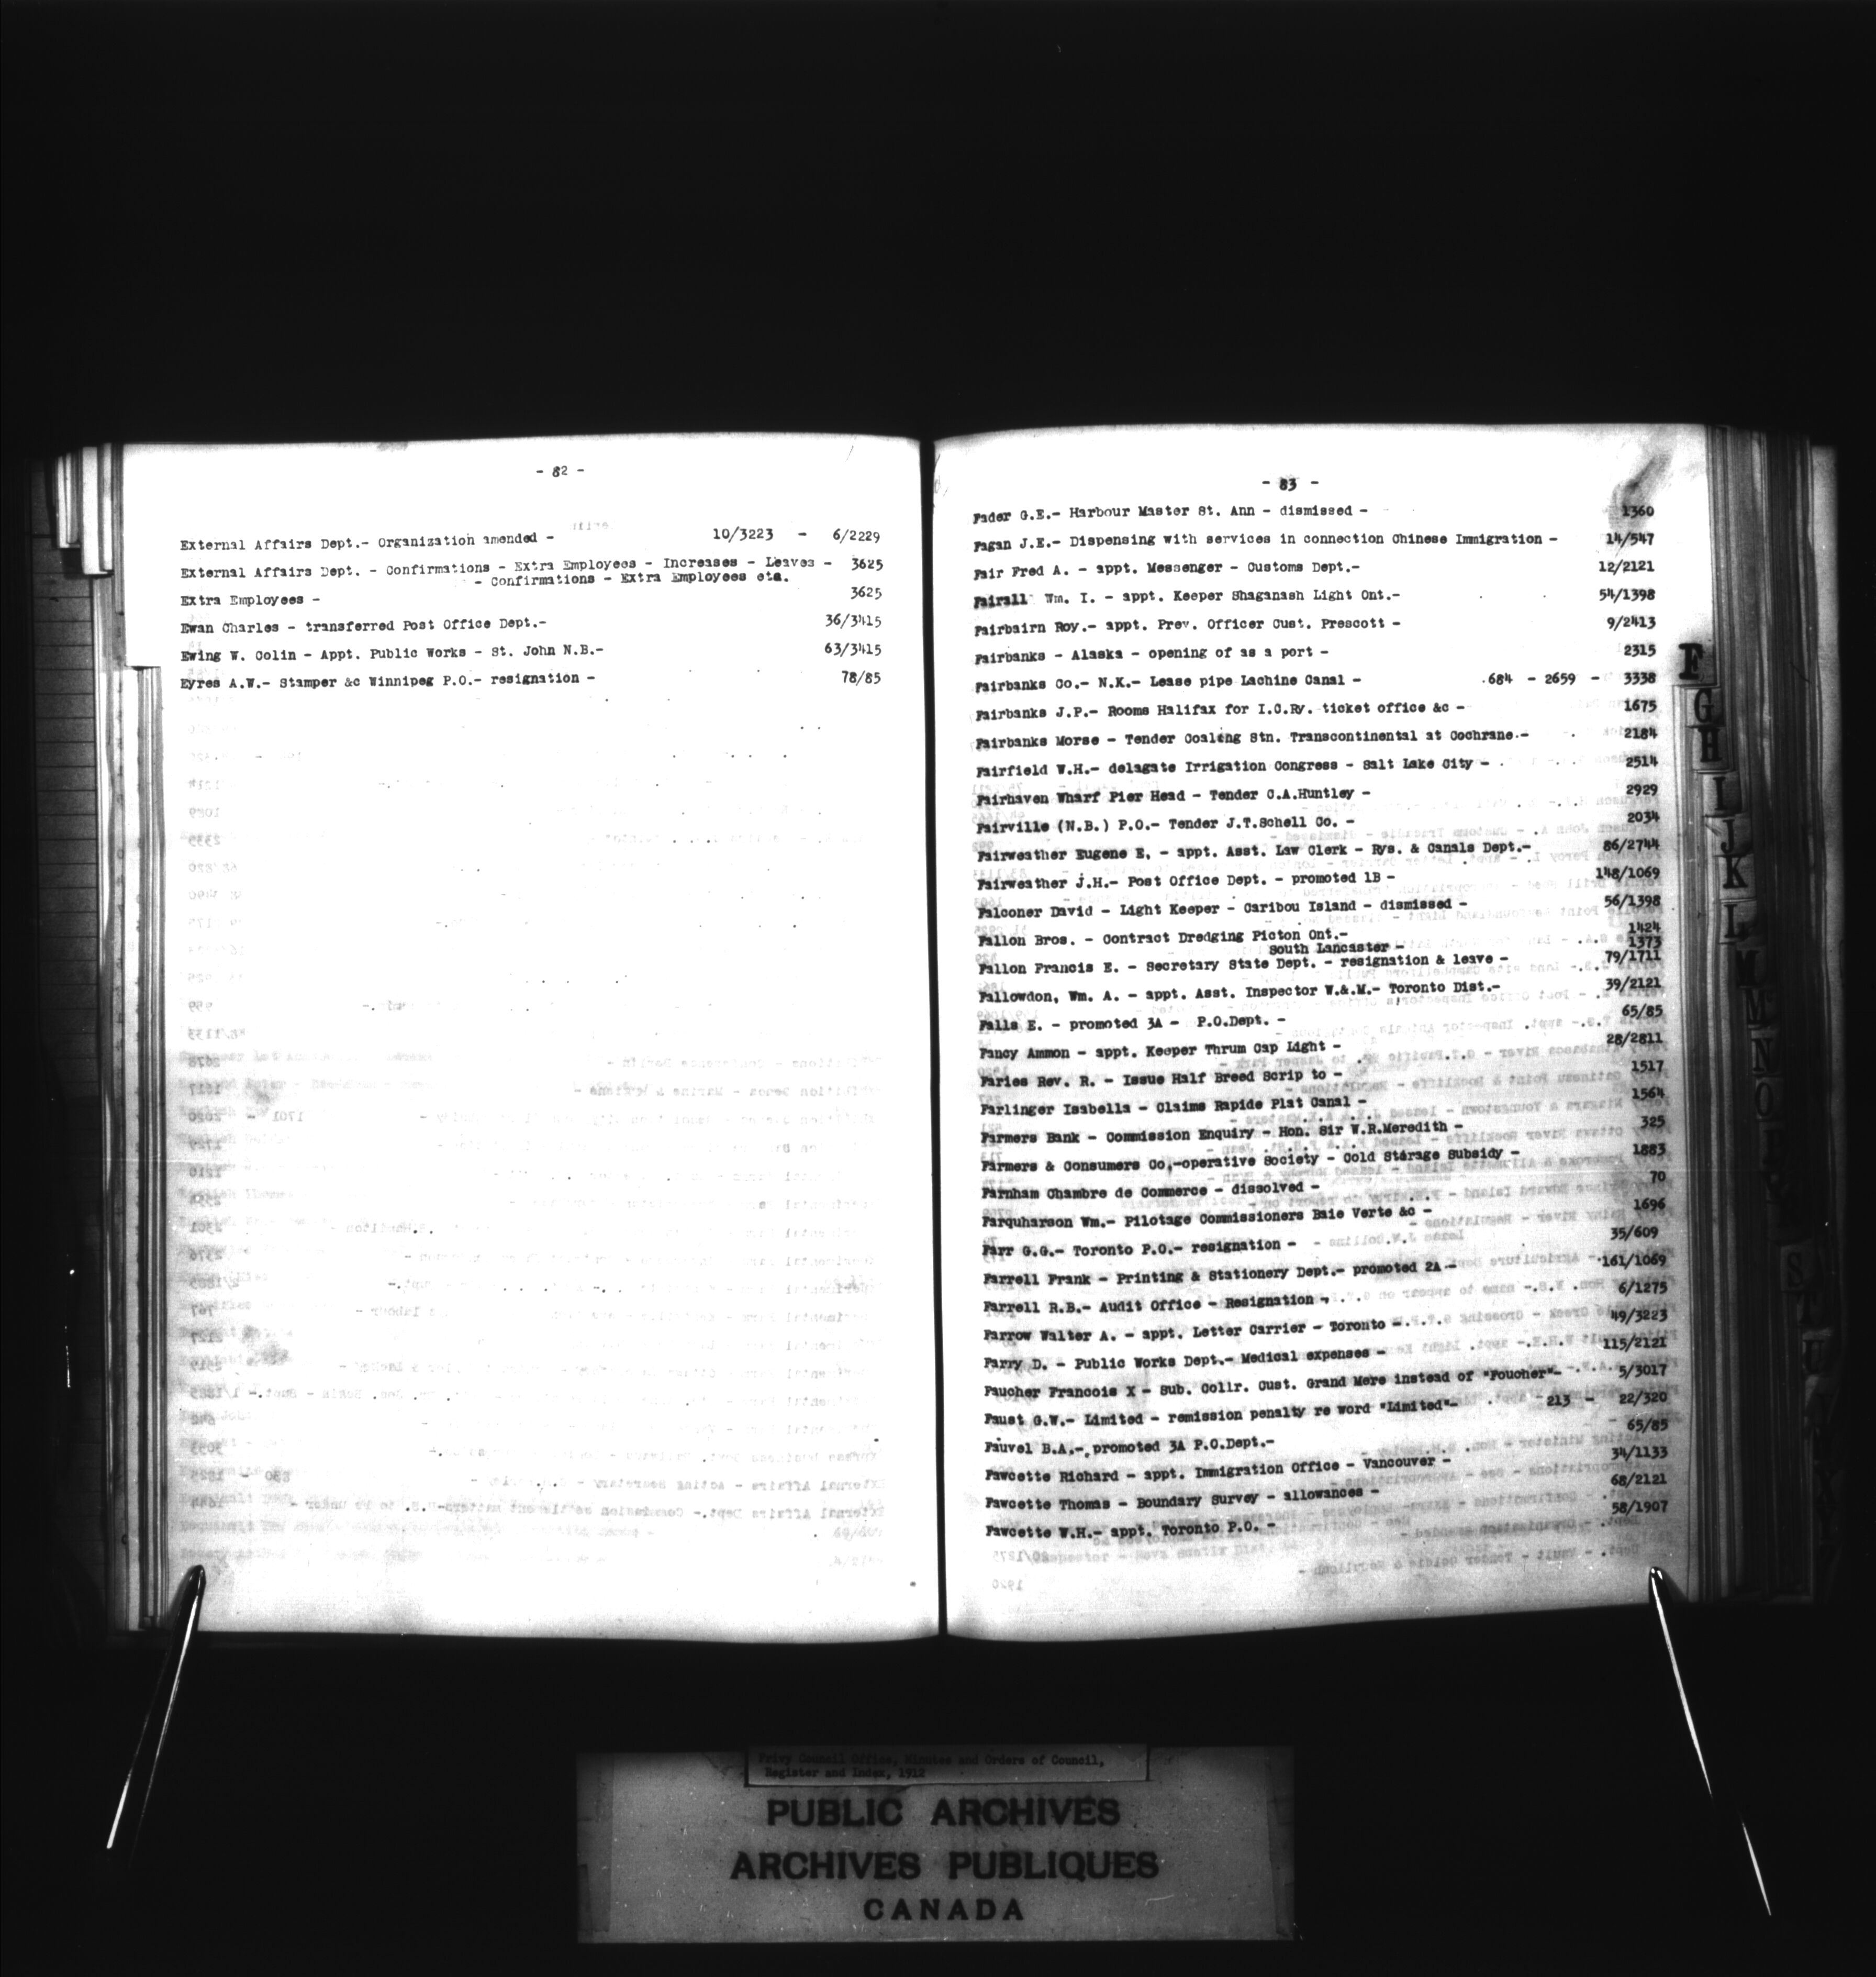 - 82 -
External Affairs Dept.- Organization amended - 10/3223 - 6/2229
External Affairs Dept. - Confirmations - Extra Employees - Increases - Leaves - 3625
- Confirmations - Extra Employees etc.
Extra Employees - 3625
Ewan Charles - transferred Post Office Dept.- 36/3415
Ewing W. Colin - Appt. Public Works - St. John N.B.- 63/3415
Eyres A.W.- Stamper &c Winnipeg P.O.- resignation - 78/85
- 83 -
Fader G.E.- Harbour Master St. Ann - dismissed - 1360
Fagan J.E.- Dispensing with services in connection Chinese Immigration - 14/547
Fair Fred A. - appt. Messenger - Customs Dept.- 12/2121
Fairall Wm. I. - appt. Keeper Shaganash Light Ont.- 54/1398
Fairbairn Roy.- appt. Prev. Officer Cust. Prescott - 9/2413
Fairbanks - Alaska - opening of as a port - 2315
Fairbanks Co.- N.K.- Lease pipe Lachine Canal - 684 - 2659 - 3338
Fairbanks J.P.- Rooms Halifax for I.C.Ry. ticket office &c - 1675
Fairbanks Morse - Tender Coaling Stn. Transcontinental at Cochrane.- 2184
Fairfield W.H.- delagate Irrigation Congress - Salt Lake City - 2514
Fairhaven Wharf Pier Head - Tender C.A.Huntley - 2929
Fairville (N.B.) P.O.- Tender J.T.Schell Co. - 2034
Fairweather Eugene E. - appt. Asst. Law Clerk - Rys. & Canals Dept.- 86/2744
Fairweather J.H.- Post Office Dept. - promoted 1B - 148/1069
Falconer David - Light Keeper - Caribou Island - dismissed - 56/1398
Fallon Bros. - Contract Dredging Picton Ont.- 1424
South Lancaster - 1373
Fallon Francis E. - Secretary State Dept. - resignation & leave - 79/1711
Fallowdon, Wm. A. - appt. Asst. Inspector W.&.M.- Toronto Dist.- 39/2121
Falls E. - promoted 3A - P.O.Dept. - 65/85
Fancy Ammon - appt. Keeper Thrum Cap Light - 28/2811
Faries Rev. R. - Issue Half Breed Scrip to - 1517
Farlinger Isabella - Claims Rapide Plat Canal - 1564
Farmers Bank - Commission Enquiry - Hon. Sir W.R.Meredith - 325
Farmers & Consumers Co.-operative Society - Cold Storage Subsidy - 1883
Farnham Chambre de Commerce - dissolved - 70
Farquharson Wm.- Pilotage Commissioners Baie Verte &c - 1696
Farr G.G.- Toronto P.O.- resignation - 35/609
Farrell Frank - Printing & Stationery Dept.- promoted 2A - 161/1069
Farrell R.B.- Audit Office - Resignation - 6/1275
Farrow Walter A. - appt. Letter Carrier - Toronto - 49/3223
Farry D. - Public Works Dept.- Medical expenses - 115/2121
Faucher Francois X - Sub. Collr. Cust. Grand Mere instead of "Foucher"- 5/3017
Faust G.W.- Limited - remission penalty re word "Limited"- 213 - 22/320
Fauvel B.A.- promoted 3A P.O.Dept.- 65/85
Fawcette Richard - appt. Immigration Office - Vancouver - 34/1133
Fawcette Thomas - Boundary Survey - allowances - 68/2121
Fawcette W.H.- appt. Toronto P.O. - 58/1907
F
G
H
I
J
K
L
M
N
O
S
T
Privy Council Office, Minutes and Orders of Council,
Register and Index, 1912
PUBLIC ARCHIVES
ARCHIVES PUBLIQUES
CANADA